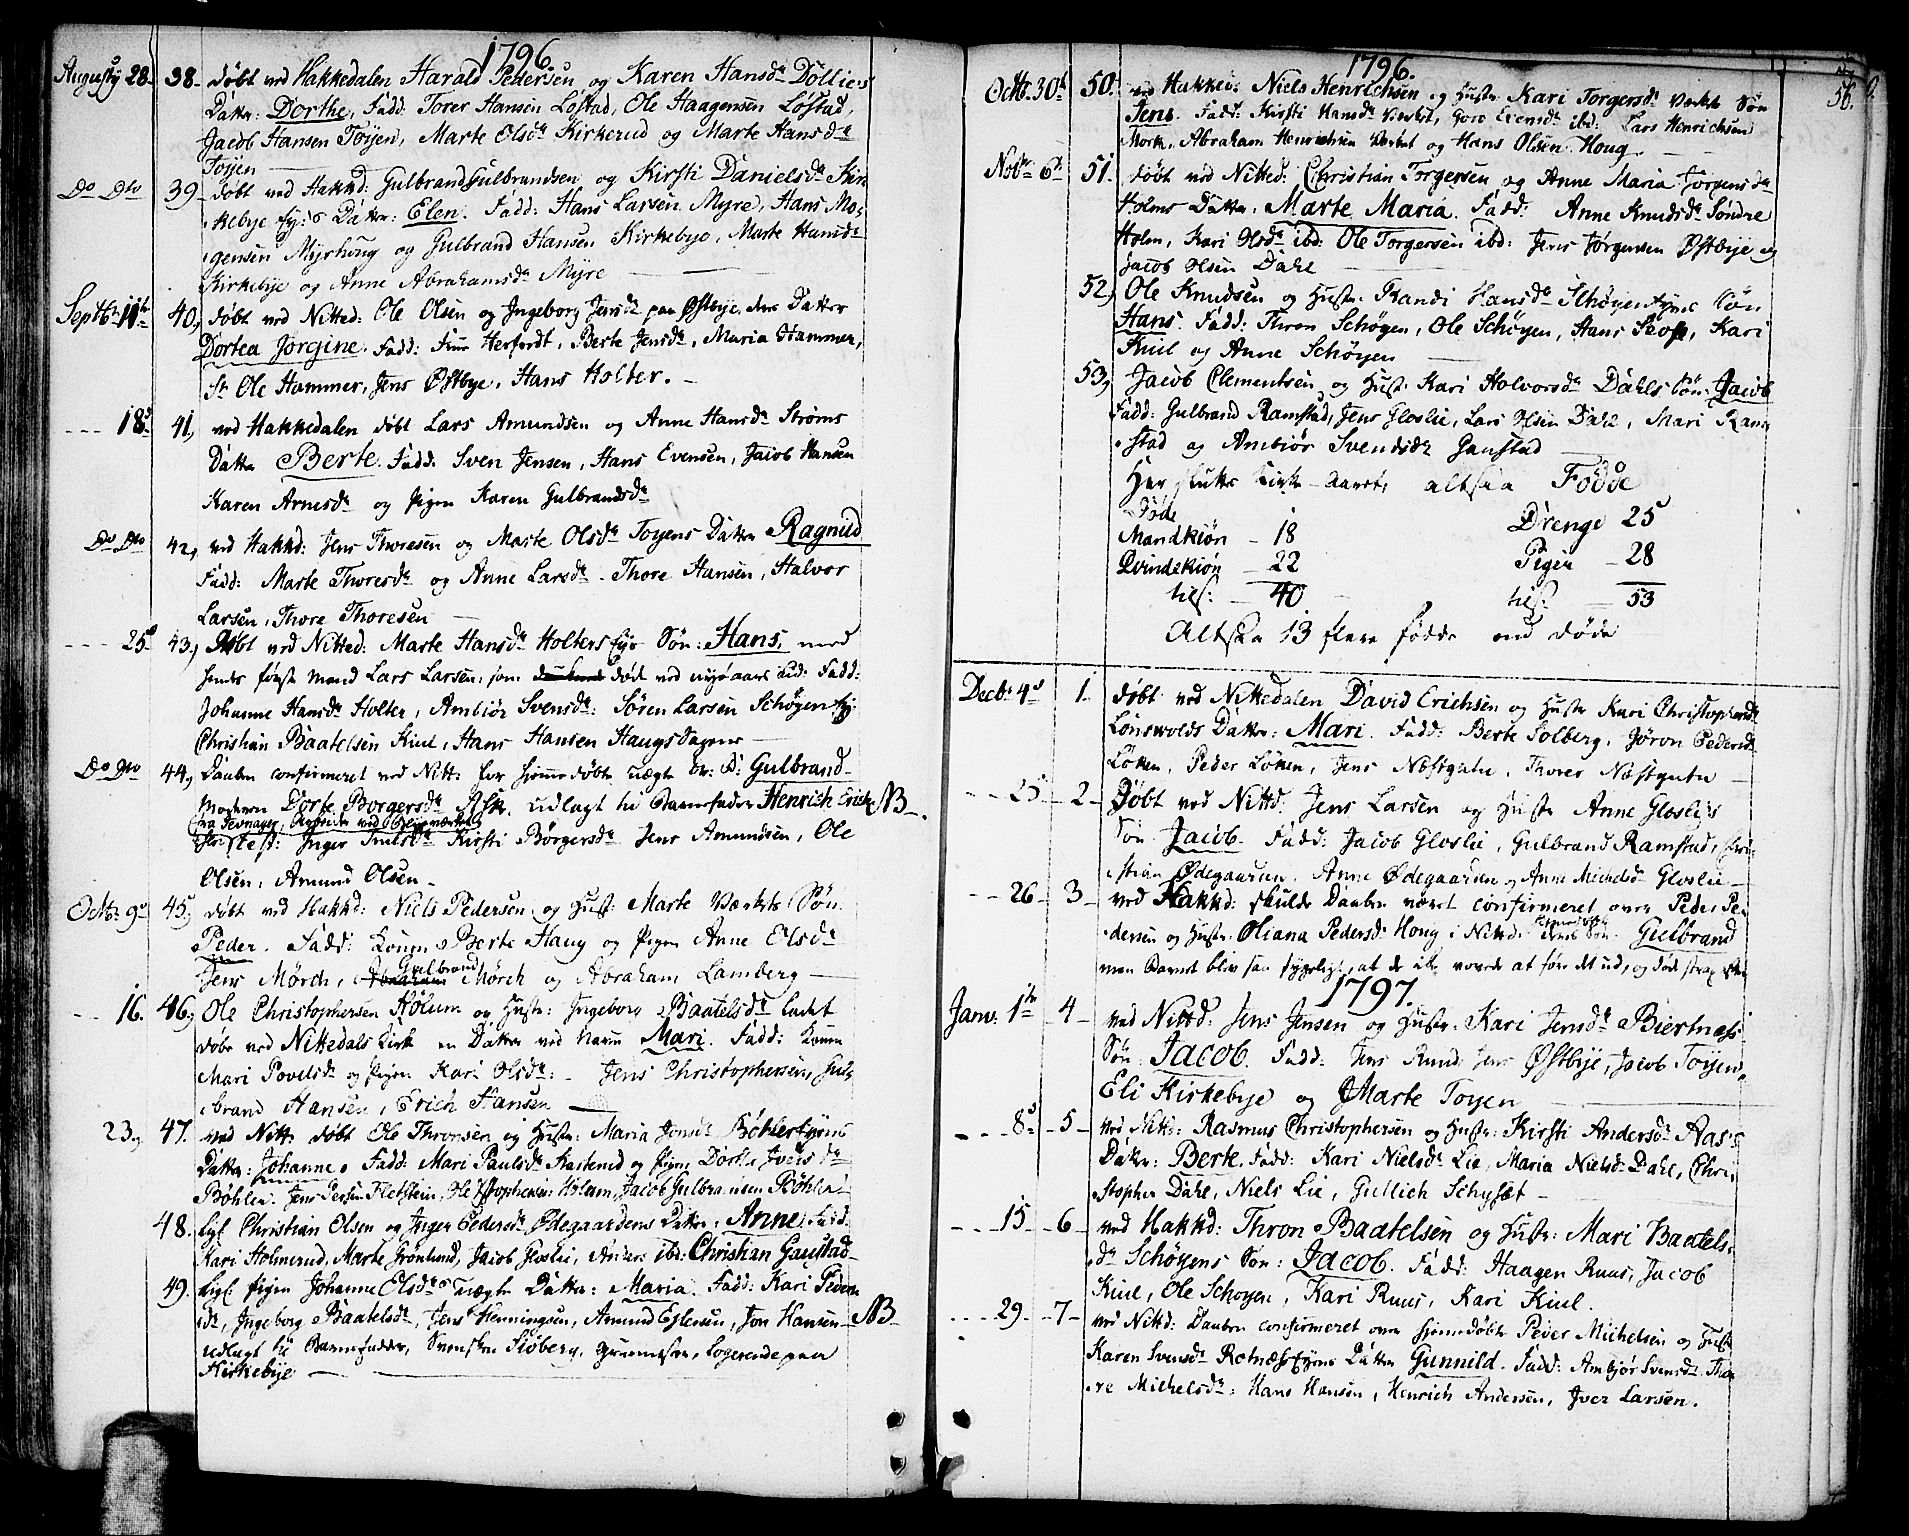 1796.
Augusty 28. 38. døbt ved Hakkedalen Harald Pedersen og Karen Hansdr Døllies
Datter: Dorthe, Fadd: Torer Hansen Løstad, Ole Haagensen Løstad,
Jacob Hansen Tøÿen, Marte Olsdr Kirkerud og Marte Hansdr
Tøÿen
Do Dto 39. døbt ved Hakkd: Gulbrand Gulbrandsen og Kirsti Danielsdr
Kirkebye Datter: Elen. Fadd: Hans Larsen Myre, Hans Mo-
gensen Myrhoug og Gulbrand Hansen Kirkebye, Marte Hansdr
Kirkebye og Anne Abrahamsdr Myre
Septbr 11te 40, døbt ved Nitted: Ole Olsen og Jngeborg Jensdr paa Østbye, deres Datter
Dortea Jørgine. Fadd: Herfordt, Berte Jensdr, Maria Hammer,
Sr Ole Hammer, Jens Østbye, Hans Holter.
18de 41, ved Hakkedalen døbt Lars Amundsen og Anne Hansdr Strøms
Datter Berte. Fadd: Sven Jensen, Hans Evensen, Jacob Hansen
Karen Arnesdr og Pigen Karen Gulbrandsdr
Do Dto 42, ved Hakkd: Jens Thoresen og Marte Olsdr Toyens Datter Ragnild
Fadd: Marte Thoresdr og Anne Larsdr. Thore Hansen, Halvor
Larsen, Thore Thoresen
25de 43, Døbt ved Nitted: Marte Hansdr Holters Søn: Hans, med
hendes første Mand Lars Larsen, som død ved nyeaars tid: Fadd:
Johanne Hansdr Holter, Ambiør Svensdr: Søren Larsen Schøgen
Christian Baatelsen Kiul, Hans Hansen Haugs
Do Dto 44, Daaben confirmeret ved Nitt: for hjemmedøbte uægte Gulbrand
Moderen Dorte Børgersdr Ask, udlagt til Barnefader Henrich NB
test: Jnger Kirsti Børgersdr Jens Amundsen, Ole
Olsen, Amund Olsen
Octbr 9de 45, døbt ved Hakkd: Niels Pedersen og Hustr: Marte Værkets Søn
Peder. Fadd: Konen Berte Haug og Pigen Anne Elsdr
Jens Mørch, Gulbrand Mørch og Abraham Lamberg
16. 46, Ole Christophersen Hølum og Hustr: Jngeborg Baatelsdr ladet
døbe ved Nittedals Kirke en Datter ved navn Mari. Fadd: Konen
Mari Povelsdr og Pigen Kari Olsdr: Jens Christophersen, Gul-
brand Hansen, Erich Hansen
23, 47. ved Nitt: døbt Ole Thronsen og Hustr: Maria Jensdr Bøhler
Datter: Johanne. Fadd: Mari Paulsdr Kasterud og Pigen Dorthe Jversdr
Bøhler. Jens Flotstein, Ole Christophersen Hølum, Jacob Gulbransen Bøhler
48. Christian Olsen og Jnger Pedersdr Ødegaardens Datter: Anne. Fadd:
Kari Holmerud, Marte Grønlund, Jacob Gloslie, Anders ibd: Christian Gaustad
49. Pigen Johanne Elsdr uægte Datter: Maria. Fadd: Kari Peders
dr, Jngeborg Baatelsdr, Jens Henningsen, Amund Estensen, Jon Hansen NB
udlagt til Barnefader, Svensken Siøberg, logerende paa
Kirkebye
1796.
56.
Octbr. 30te 50. ved Hakked: Niels Henrichsen og Hustr Kari Torgersdr Værket Søn
Jens. Fadd: Kirsti Hansdr Værket, ibd: Lars Henrichsen
Mork, Abraham Henrichsen Værket og Hans Olsen Houg
Novbr 6te 51. døbt ved Nitted: Christian Torgersen og Anne Maria Jørgensdr
Holms Datter, Marte Maria. Fadd: Anne Knudsdr Søndre
Holm, Kari Olsdr ibd: Ole Torgersen ibd: Jens Jørgensen Østbye og
Jacob Olsen Dahl
52, Ole Knudsen og Hustr: Randi Hansdr Schøyen Søn
Hans. Fadd: Thron Schøgen, Ole Schøyen, Hans, Kari
Kiul og Anne Schøyen
53, Jacob Clementsen og Hustr: Kari Holvorsdr Dahls Søn: Jacob
Fadd: Gulbrand Ramstad, Jens Gloslie, Lars Olsen Dahl, Mari Ram-
stad og Ambiør Svendsdr Gaustad
Her slutter Kirke-aaret, altsaa Fødde
Døde
Mandkiøn - 18 Drenge 25
Qvindekiøn - 22 Piger - 28
tils: - 40 tils: - 53
Altsaa 13 flere fødde end døde
Decbr: 4de 1. døbt ved Nittedalen David Erichsen og Hustr Kari Christophersdr
Lønsvolds Datter: Mari. Fadd: Berte Solberg, Jøron Pedersdr
Løken, Peder Løken, Jens Næstgutu, Thorer Næstgutu
25 2. Døbt ved Nittd: Jens Larsen og Hustr Anne Gloslies
Søn Jacob. Fadd: Jacob Gloslie, Gulbrand Ramstad, Chri-
stian Ødegaarden, Anne Ødegaarden og Anne Michelsdr Gloslie
26 3. ved Hakkd: skulde Daaben været confirmeret over Peder Pe-
dersen og Hustr: Oliana Pedersdr Houg i Nittd: Søn: Gulbrand
men Barnet blev saa sygeligt, at de ikke vovede at føre det ud, og døde strax efter
1797.
Janv: 1te 4 ved Nittd: Jens Jensen og Hustr: Kari Jensdr Biertnæs
Søn: Jacob. Fadd: Jens Ruud, Jens Østbye, Jacob Toÿen,
Eli Kirkebye og Marte Toyen
8de 5 ved Nittd: Rasmus Christophersen og Hustr: Kirsti Andersdr Aas's
Datter: Berte. Fadd: Kari Nielsdr Lie, Maria Nielsdr Dahl, Chri-
stopher Dahl, Niels Lie, Gullich Schyset
15 6 ved Hakkd: Thron Baatelsen og Hustr: Mari Baatels-
dr Schøyens Søn: Jacob. Fadd: Haagen Ruus, Jacob
Kiul, Ole Schøyen, Kari Ruus, Kari Kiul.
29 7 ved Nittd: Daaben confirmeret over hjemmedøbte Peder Michelsen og Hustr
Karen Svensdr Rotnæs Datter Gunnild. Fadd: Ambjør Svensdr, Tho-
re Michelsdr: Hans Hansen, Henrich Andersen, Jver Larsen.